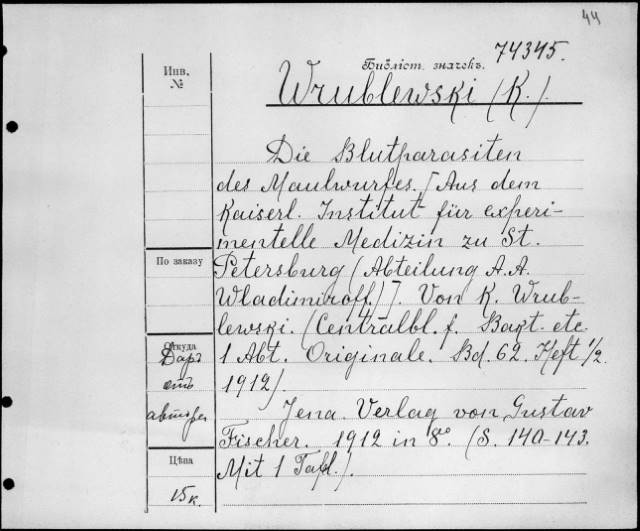 44
74345.
Инв.
№
Библіот. значекъ.
Wrublewski (K.).
Die Blutparasiten
des Maulwurfes. [Aus dem
Kaiserl. Institut für experi-
mentelle Medizin zu St.
Petersburg (Abteilung A.A.
Wladimiroff.)]. Von K. Wrub-
lewski. (Centralbl. f. Bakt. etc.
1 Abt. Originale. Bd. 62. Heft 1/2.
1912).
Jena. Verlag von Gustav
Fischer. 1912 in 8º. (S. 140-143.
Mit 1 Tafl.).
По заказу
Откуда
Даръ
отъ
автора
Цѣна
15 к.